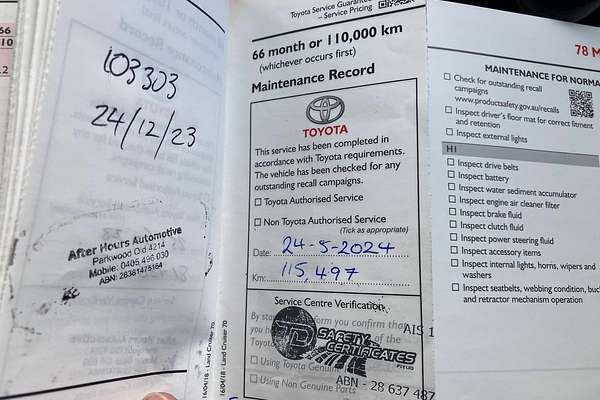 66
10
.2
103303
24/12/23
After Hours Automotive
Parkwood Qld 4214
Mobile: 0405 496 030
ABN: 28361475164
Toyota Service Guarantee
– Service Pricing
66 month or 110,000 km
(whichever occurs first)
Maintenance Record
TOYOTA
This service has been completed in
accordance with Toyota requirements.
The vehicle has been checked for any
outstanding recall campaigns.
Toyota Authorised Service
Non Toyota Authorised Service
(Tick as appropriate)
Date: 24-5-2024
Km: 115,497
Service Centre Verification
By sta confirm that
you h AIS 1
of the
Toyota
SAFETY
CERTIFICATES
PTY LTD
Using Toyota Genuine
Using Non Genuine Parts
ABN - 28 637 487
16/04/18 - Land Cruiser 70
16/04/18 - Land Cruiser 70
78 M
MAINTENANCE FOR NORMA
Check for outstanding recall
campaigns
www.productsafety.gov.au/recalls
Inspect driver's floor mat for correct fitment
and retention
Inspect external lights
HI
Inspect drive belts
Inspect battery
Inspect water sediment accumulator
Inspect engine air cleaner filter
Inspect brake fluid
Inspect clutch fluid
Inspect power steering fluid
Inspect accessory items
Inspect internal lights, horns, wipers and
washers
Inspect seatbelts, webbing condition, buck
and retractor mechanism operation